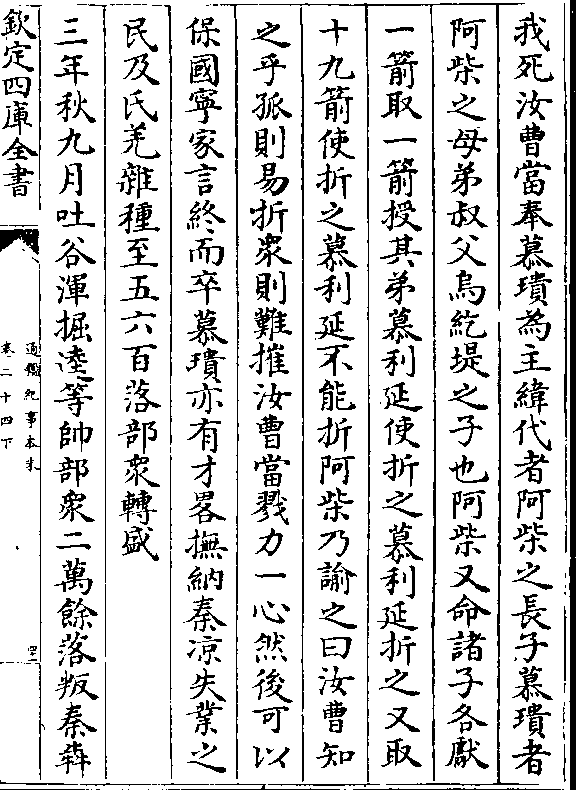 我死汝曹當奉慕璝為主緯代者阿柴之長子慕璝者
阿柴之母弟叔父烏紇堤之子也阿柴又命諸子各獻
一箭取一箭授其弟慕利延使折之慕利延折之又取
十九箭使折之慕利延不能折阿柴乃諭之曰汝曹知
之乎孤則易折衆則難摧汝曹當戮力一心然後可以
保國寧家言終而卒慕璝亦有才畧撫納秦凉失業之
民及氐羌雜種至五六百落部衆轉盛
三年秋九月吐谷渾掘逵等帥部衆二萬餘落叛秦犇
欽定四庫全書
通鑑紀事本末
卷二十四下
四二